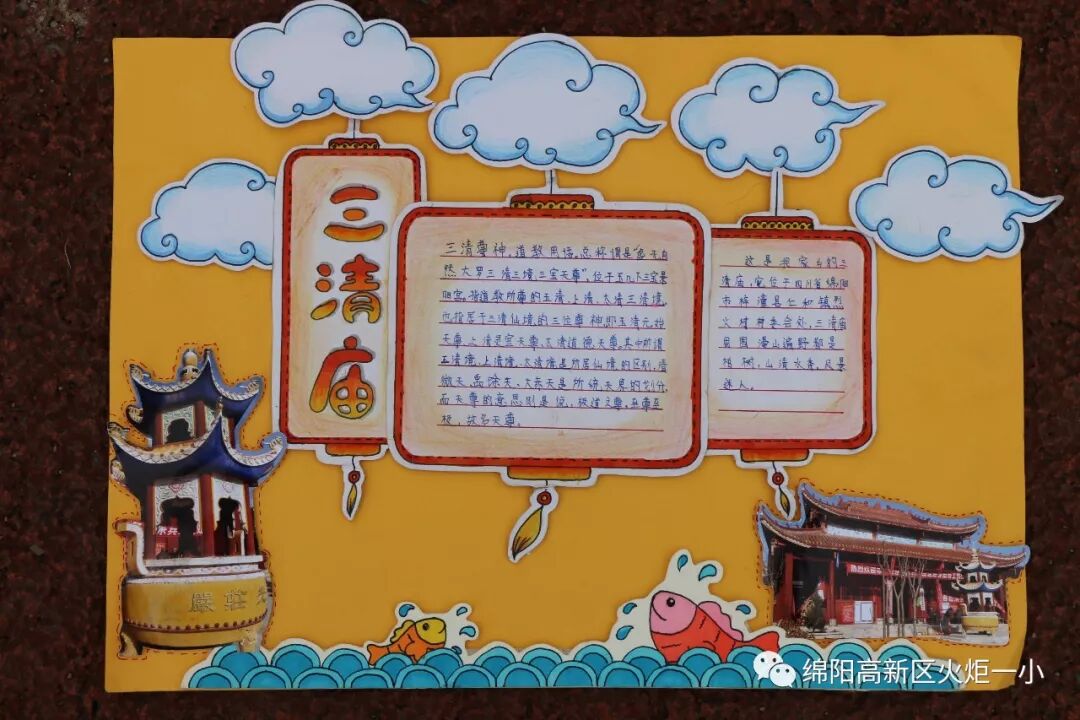 三清庙
三清尊神,道教用语,总称谓是“虚无自
然大罗三清三境三宝天尊”,位于五凡下三宝景
阳宫。指道教所尊的玉清、上清、太清三清境,
也指居于三清仙境的三位尊神,即玉清元始
天尊、上清灵宝天尊、太清道德天尊。其中所谓
玉清境、上清境、太清境是所居仙境的区别,清
微天、禹馀天、大赤天是所统天界的划分,
而天尊的意思则是说,极道之尊,至尊至
极,故名天尊。
这是我家乡的三
清庙,它位于四川省绵阳
市梓潼县仁和镇烈
火村村委会处,三清庙
周围漫山遍野都是
柏树,山清水秀,风景
迷人。
嚴莊
绵阳高新区火炬一小